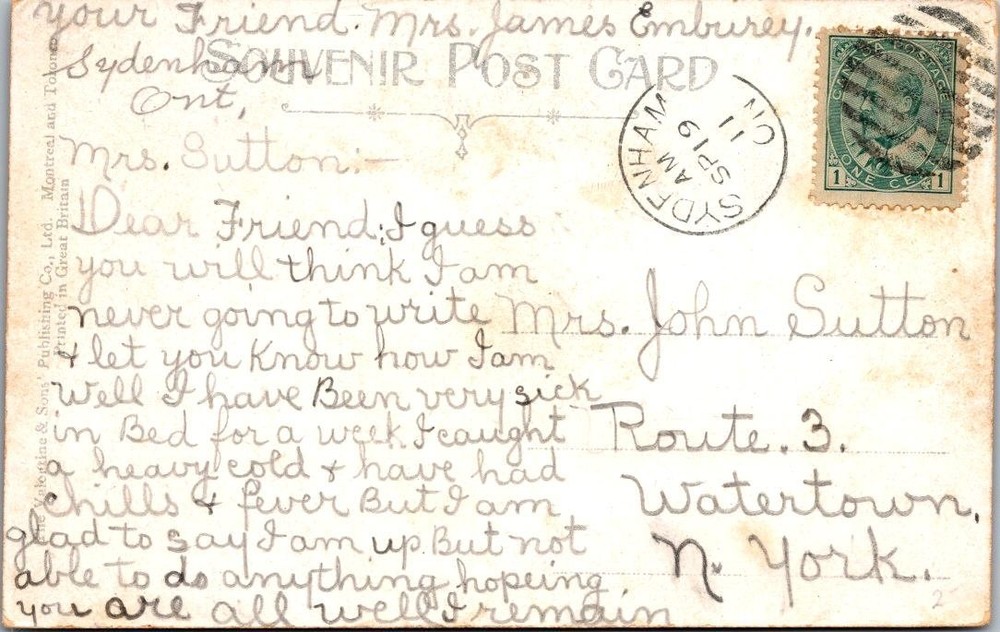 your Friend. Mrs. James Emburey.
Sydenham
Ont,
SOUVENIR POST CARD
Mrs. Sutton:-
Dear Friend: I guess
you will think I am
never going to write
& let you Know how I am
well I have Been very sick
in Bed for a week. I caught
a heavy cold & have had
chills & fever But I am
glad to say I am up But not
able to do anything hopeing
you are all well I remain
The Valentine & Sons' Publishing Co., Ltd. Montreal and Toronto
Printed in Great Britain
SYDENHAM
AM
SP 19
11
ON
CANADA POSTAGE
1 ONE CENT 1
Mrs. John Sutton
Route. 3.
Watertown,
N. York.
2